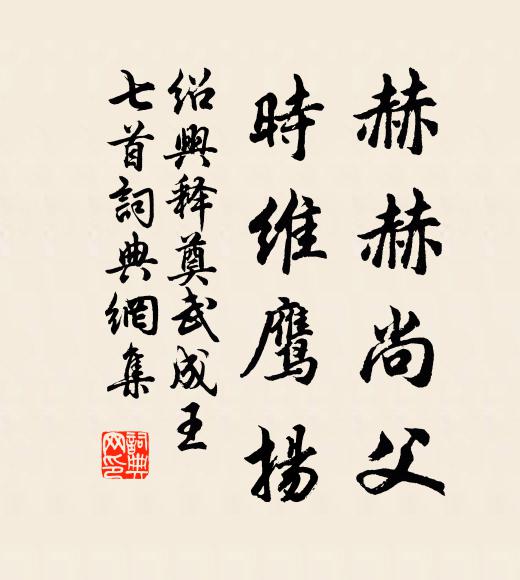 赫赫尚父
時維鷹揚
紹興释奠武成王
七首詞典網集
詞典
网印